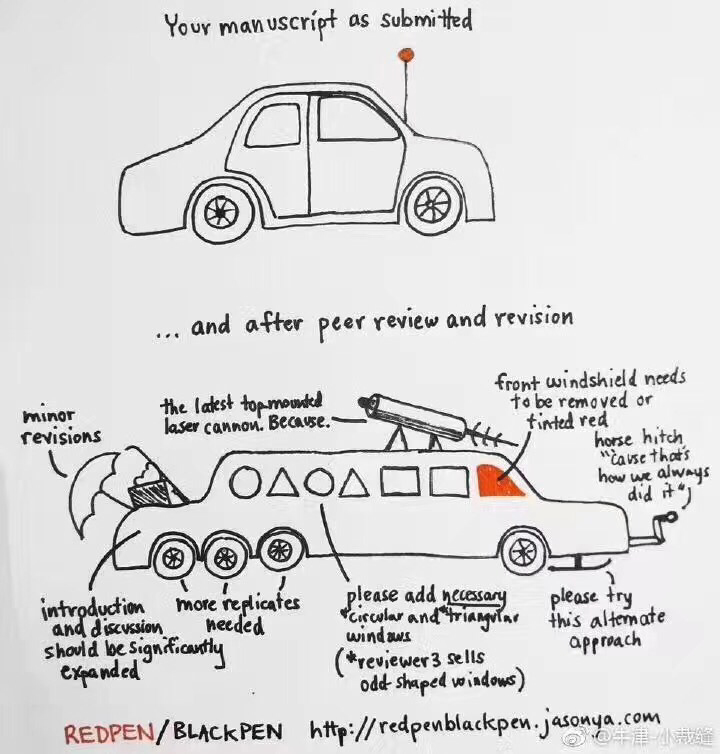 Your manuscript as submitted
... and after peer review and revision
minor
revisions
the latest top-mounted
laser cannon. Because.
front windshield needs
to be removed or
tinted red
horse hitch
"'cause that's
how we always
did it"
introduction
and discussion
should be significantly
expanded
more replicates
needed
please add necessary
*circular and *triangular
windows
(*reviewer 3 sells
odd shaped windows)
please try
this alternate
approach
REDPEN/BLACKPEN http://redpenblackpen.jasonya.com
@牛津-小裁缝